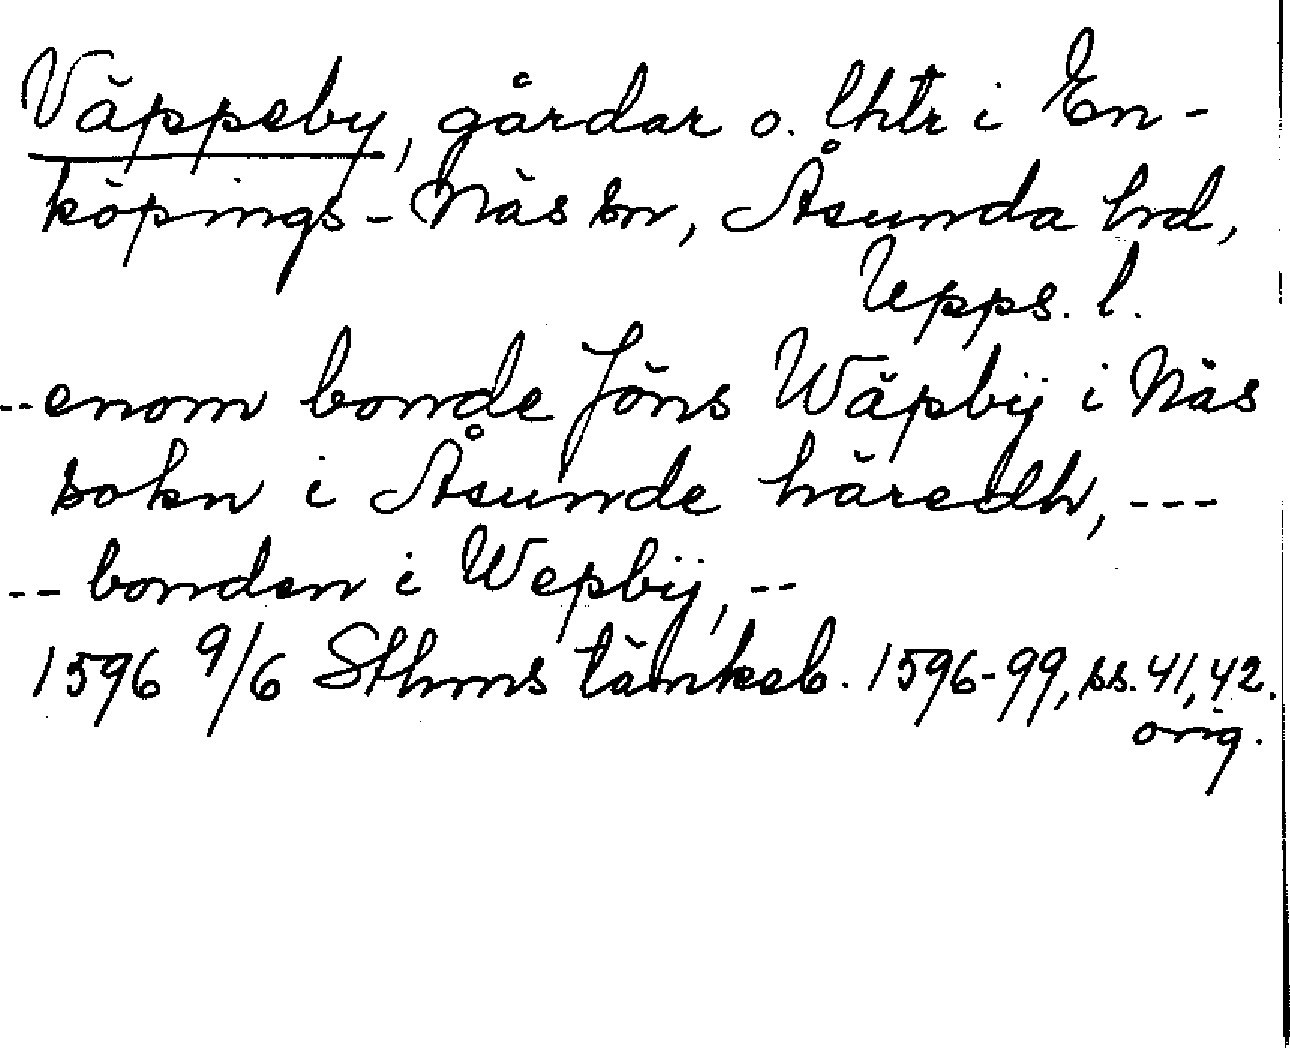 Väppeby, gårdar o. lhtr i En-
köpings-Näs sn, Åsunda hd,
Upps. l.
--enom bonde Jöns Wäpbÿ i Näs
sokn i Åsunde häredh, ---
-- bonden i Wepbÿ, --
1596 9/6 Sthms tänkeb. 1596-99, ss. 41, 42.
orig.